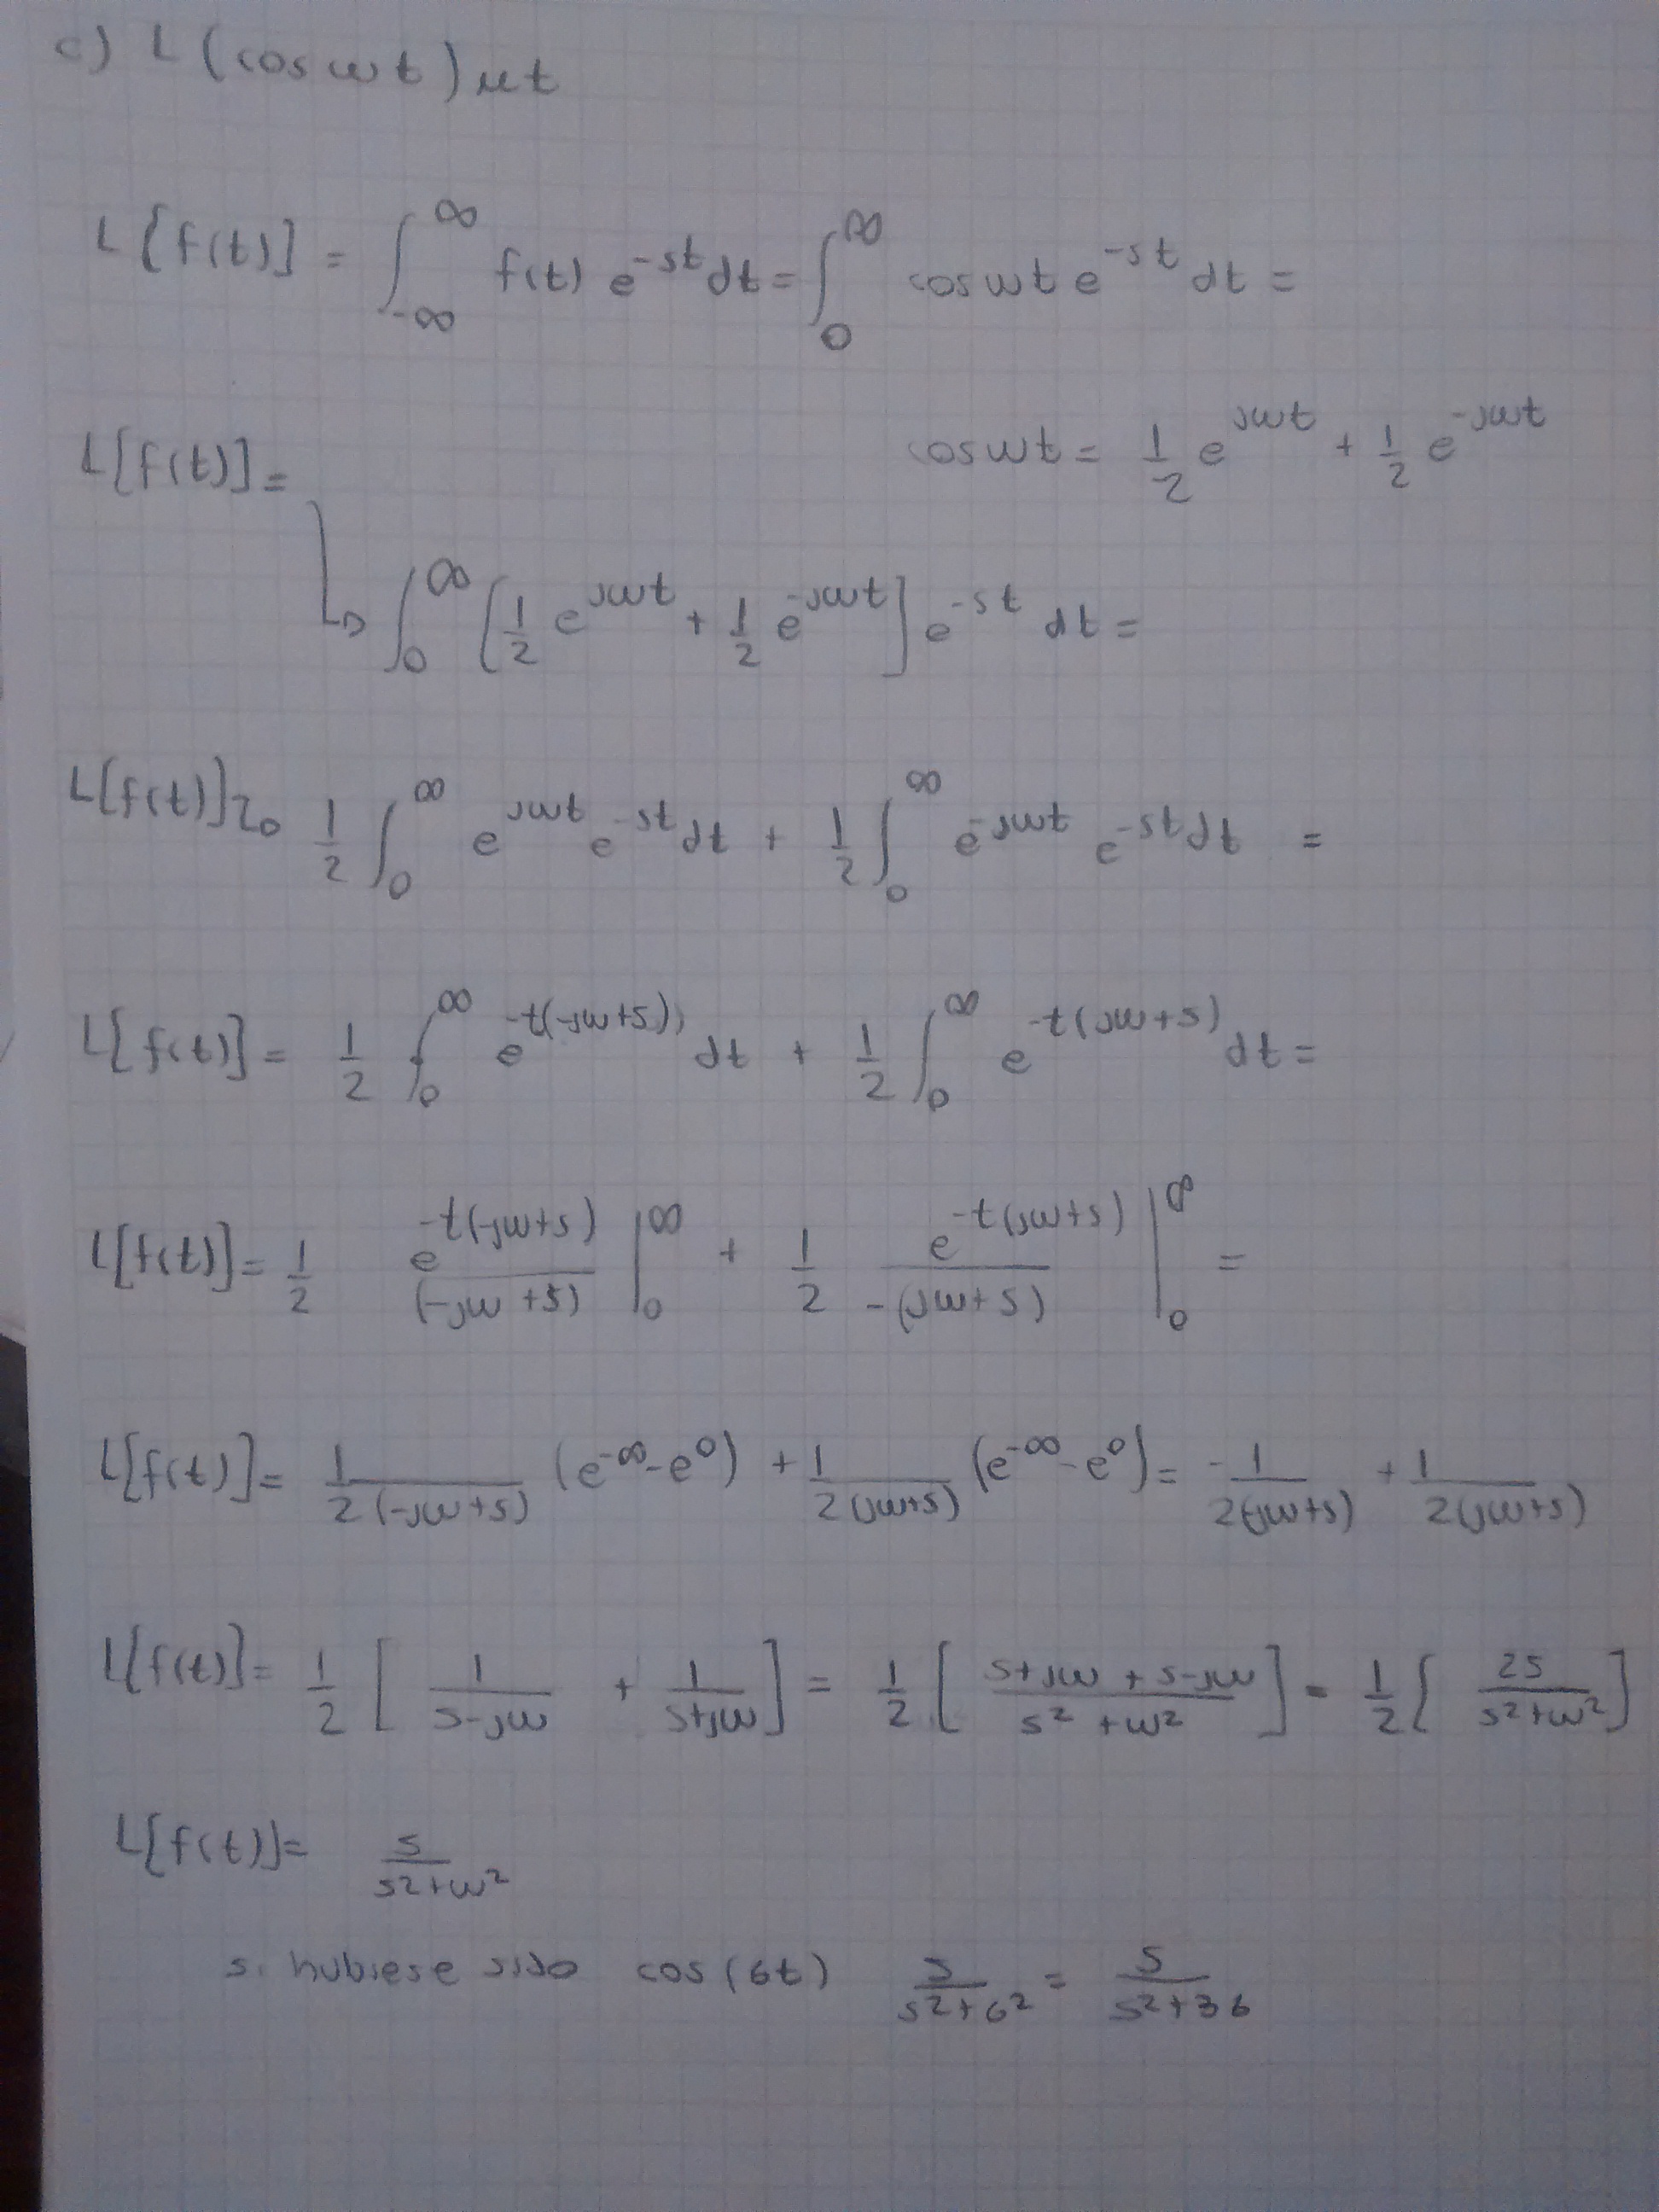 c) L (cos wt) μt
L[f(t)] = ∫_{-∞}^{∞} f(t) e^{-st} dt = ∫_0^∞ cos wt e^{-st} dt =
cos wt = 1/2 e^{jwt} + 1/2 e^{-jwt}
L[f(t)] =
↳ ∫_0^∞ [1/2 e^{jwt} + 1/2 e^{-jwt}] e^{-st} dt =
L[f(t)] ↳ 1/2 ∫_0^∞ e^{jwt} e^{-st} dt + 1/2 ∫_0^∞ e^{-jwt} e^{-st} dt =
L[f(t)] = 1/2 ∫_0^∞ e^{-t(-jw+s))} dt + 1/2 ∫_0^∞ e^{-t(jw+s)} dt =
L[f(t)] = 1/2 e^{-t(-jw+s)}/(-jw+s) |_0^∞ + 1/2 e^{-t(jw+s)}/-(jw+s) |_0^∞ =
L[f(t)] = 1/2(-jw+s) (e^{-∞}-e^0) + 1/2(jw+s) (e^{-∞}-e^0) = -1/2(-jw+s) + 1/2(jw+s)
L[f(t)] = 1/2 [1/s-jw + 1/s+jw] = 1/2 [s+jw + s-jw/s² + w²] = 1/2 [2s/s²+w²]
L[f(t)] = s/s²+w²
si hubiese sido cos(6t) s/s²+6² = s/s²+36